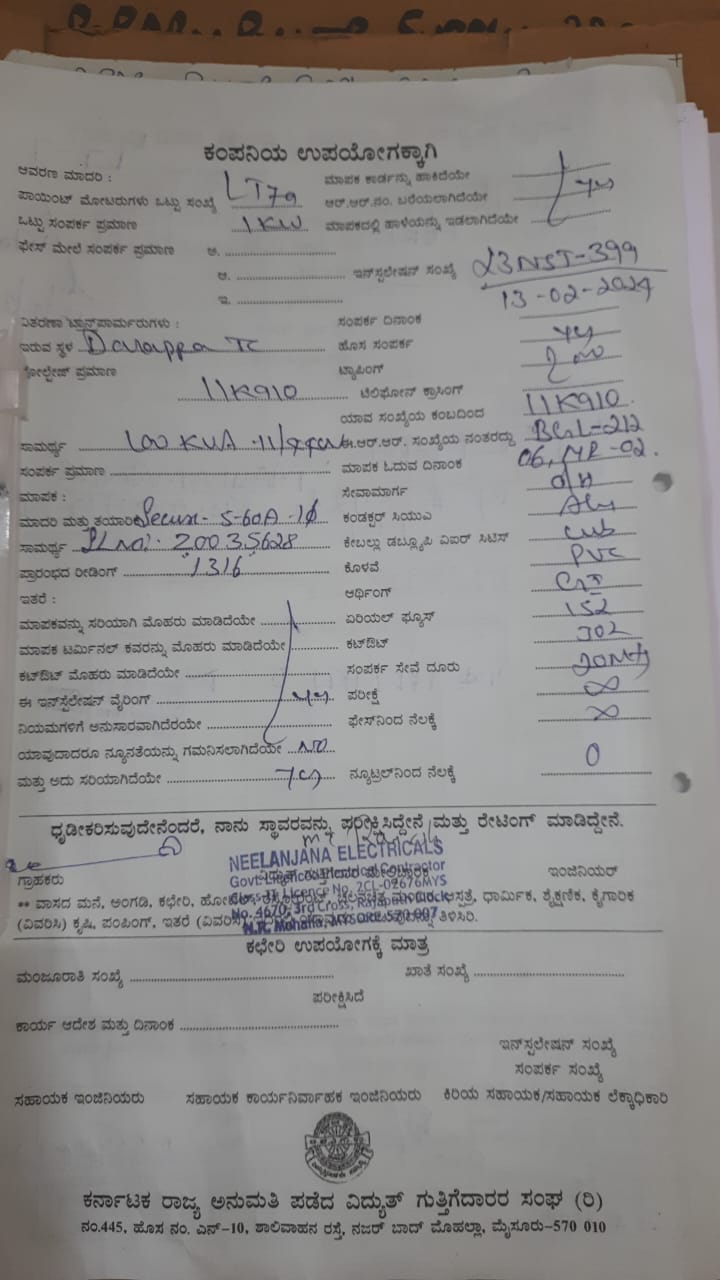 ಕಂಪನಿಯ ಉಪಯೋಗಕ್ಕಾಗಿ
ಆವರಣ ಮಾದರಿ : ಮಾಪಕ ಕಾರ್ಡನ್ನು ಹಾಕಿದೆಯೇ
ಪಾಯಿಂಟ್ ಮೋಟರುಗಳು ಒಟ್ಟು ಸಂಖ್ಯೆ LT7a ಆರ್.ಆರ್.ನಂ. ಬರೆಯಲಾಗಿದೆಯೇ yes
ಒಟ್ಟು ಸಂಪರ್ಕ ಪ್ರಮಾಣ 1KW ಮಾಪಕದಲ್ಲಿ ಹಾಳೆಯನ್ನು ಇಡಲಾಗಿದೆಯೇ
ಫೇಸ್ ಮೇಲೆ ಸಂಪರ್ಕ ಪ್ರಮಾಣ ಅ. ....................
ಆ. .................... ಇನ್‌ಸ್ಟಲೇಷನ್ ಸಂಖ್ಯೆ 23NST-399
ಇ. .................... 13-02-2024
ವಿತರಣಾ ಟ್ರಾನ್ಸ್‌ಫಾರ್ಮರುಗಳು : ಸಂಪರ್ಕ ದಿನಾಂಕ
ಇರುವ ಸ್ಥಳ TC ಹೊಸ ಸಂಪರ್ಕ yes
ವೋಲ್ಟೇಜ್ ಪ್ರಮಾಣ ಟ್ಯಾಪಿಂಗ್
11K910 ಟೆಲಿಫೋನ್ ಕ್ರಾಸಿಂಗ್
ಯಾವ ಸಂಖ್ಯೆಯ ಕಂಬದಿಂದ 11K910.
ಸಾಮರ್ಥ್ಯ 100 KVA ಈ.ಆರ್.ಆರ್. ಸಂಖ್ಯೆಯ ನಂತರದ್ದು BGL-212
ಸಂಪರ್ಕ ಪ್ರಮಾಣ .................... ಮಾಪಕ ಓದುವ ದಿನಾಂಕ 06, MR-02.
ಮಾಪಕ : ಸೇವಾಮಾರ್ಗ O/H
ಮಾದರಿ ಮತ್ತು ತಯಾರಿಕೆ Secure- 5-60A-1ϕ ಕಂಡಕ್ಟರ್ ಸಿಯುಎ
ಸಾಮರ್ಥ್ಯ SL No: 20035628 ಕೇಬಲ್ಲು ಡಬ್ಲ್ಯೂಪಿ ವಿಐರ್ ಸಿಟಿಸ್
ಪ್ರಾರಂಭದ ರೀಡಿಂಗ್ 1316 ಕೊಳವೆ PVC
ಇತರೆ : ಅರ್ಥಿಂಗ್ GI
ಮಾಪಕವನ್ನು ಸರಿಯಾಗಿ ಮೊಹರು ಮಾಡಿದೆಯೇ ಏರಿಯಲ್ ಫ್ಯೂಸ್ 152
ಮಾಪಕ ಟರ್ಮಿನಲ್ ಕವರನ್ನು ಮೊಹರು ಮಾಡಿದೆಯೇ ಕಟ್‌ಔಟ್ 302
ಕಟ್‌ಔಟ್ ಮೊಹರು ಮಾಡಿದೆಯೇ ಸಂಪರ್ಕ ಸೇವೆ ದೂರು
ಈ ಇನ್‌ಸ್ಟಲೇಷನ್ ವೈರಿಂಗ್ yes. ಪರೀಕ್ಷೆ ∞
ನಿಯಮಗಳಿಗೆ ಅನುಸಾರವಾಗಿದೆರಯೇ ಫೇಸ್‌ನಿಂದ ನೆಲಕ್ಕೆ ∞
ಯಾವುದಾದರೂ ನ್ಯೂನತೆಯನ್ನು ಗಮನಿಸಲಾಗಿದೆಯೇ NO
ಮತ್ತು ಅದು ಸರಿಯಾಗಿದೆಯೇ yes ನ್ಯೂಟ್ರಲ್‌ನಿಂದ ನೆಲಕ್ಕೆ 0
ಧೃಡೀಕರಿಸುವುದೇನೆಂದರೆ, ನಾನು ಸ್ಥಾವರವನ್ನು ಪರೀಕ್ಷಿಸಿದ್ದೇನೆ ಮತ್ತು ರೇಟಿಂಗ್ ಮಾಡಿದ್ದೇನೆ.
NEELANJANA ELECTRICALS
ಗ್ರಾಹಕರು Govt. Licenced Electrical Contractor ಇಂಜಿನಿಯರ್
Class-II Licence No. 2CL-02676MYS
** ವಾಸದ ಮನೆ, ಅಂಗಡಿ, ಕಛೇರಿ, ಆಸ್ಪತ್ರೆ, ಧಾರ್ಮಿಕ, ಶೈಕ್ಷಣಿಕ, ಕೈಗಾರಿಕ
No. 4670, 3rd Cross,
(ವಿವರಿಸಿ) ಕೃಷಿ, ಪಂಪಿಂಗ್, ಇತರೆ ತಿಳಿಸಿರಿ.
N.R. Mohalla, MYSORE-570 007
ಕಛೇರಿ ಉಪಯೋಗಕ್ಕೆ ಮಾತ್ರ
ಮಂಜೂರಾತಿ ಸಂಖ್ಯೆ .................... ಖಾತೆ ಸಂಖ್ಯೆ ....................
ಪರೀಕ್ಷಿಸಿದೆ
ಕಾರ್ಯ ಆದೇಶ ಮತ್ತು ದಿನಾಂಕ ....................
ಇನ್‌ಸ್ಟಲೇಷನ್ ಸಂಖ್ಯೆ
ಸಂಪರ್ಕ ಸಂಖ್ಯೆ
ಸಹಾಯಕ ಇಂಜಿನಿಯರು ಸಹಾಯಕ ಕಾರ್ಯನಿರ್ವಾಹಕ ಇಂಜಿನಿಯರು ಕಿರಿಯ ಸಹಾಯಕ/ಸಹಾಯಕ ಲೆಕ್ಕಾಧಿಕಾರಿ
ಕರ್ನಾಟಕ ರಾಜ್ಯ ಅನುಮತಿ ಪಡೆದ ವಿದ್ಯುತ್ ಗುತ್ತಿಗೆದಾರರ ಸಂಘ (ರಿ)
ನಂ.445, ಹೊಸ ನಂ. ಎನ್-10, ಶಾಲಿವಾಹನ ರಸ್ತೆ, ನಜರ್ ಬಾದ್ ಮೊಹಲ್ಲಾ, ಮೈಸೂರು-570 010